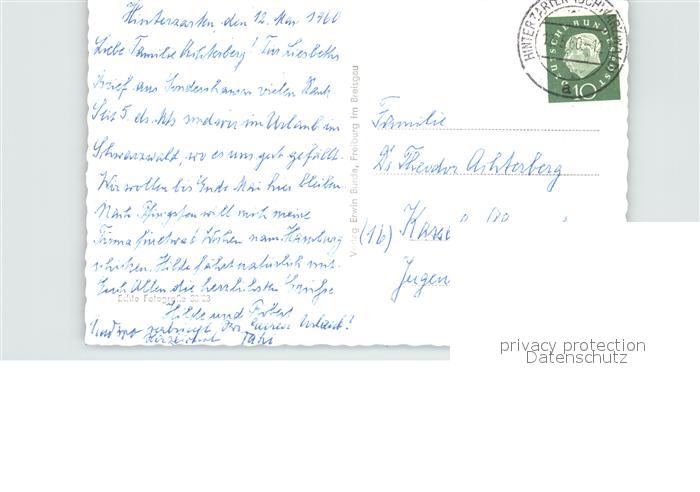 Hinterzarten, den 12. Mai 1960
Liebe Familie Achterberg! Für Liesbeths
Brief aus Sondershausen vielen Dank.
Seit 5. ds. Mts sind wir im Urlaub im
Schwarzwald, wo es uns gut gefällt.
Wir wollen bis Ende Mai hier bleiben.
Nach Pfingsten will mich meine
Firma für etwa Wochen nach Hamburg
schicken. Hilde fährt natürlich mit.
Euch Allen die herzlichsten Grüsse
Echte Fotografie
Hilde und
Und wo verbringt Ihr Euren Urlaub?
Verlag Erwin Burda, Freiburg im Breisgau
HINTERZARTEN (SCHWARZWALD)
a
DEUTSCHE BUNDESPOST
10
Familie
Dr. Theodor Achterberg
(16) Kassel
Jugen
privacy protection
Datenschutz